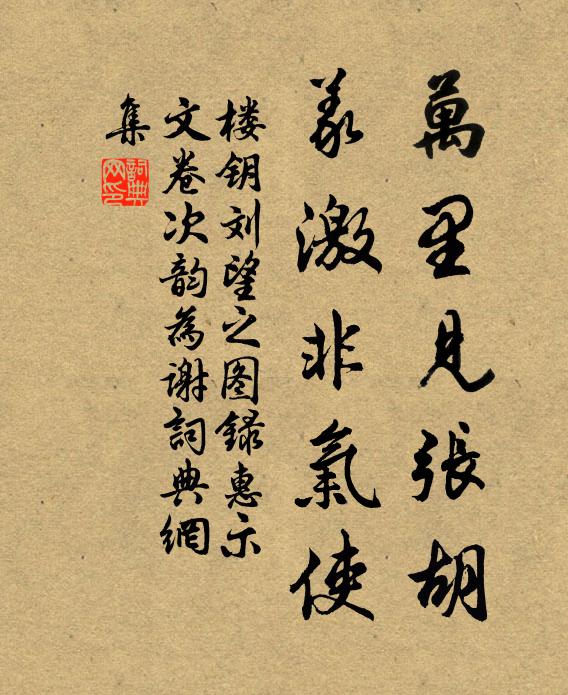 萬里見張胡
義激非氣使
楼钥刘望之图録惠示
文卷次韵為谢詞典網
集
詞典
网印